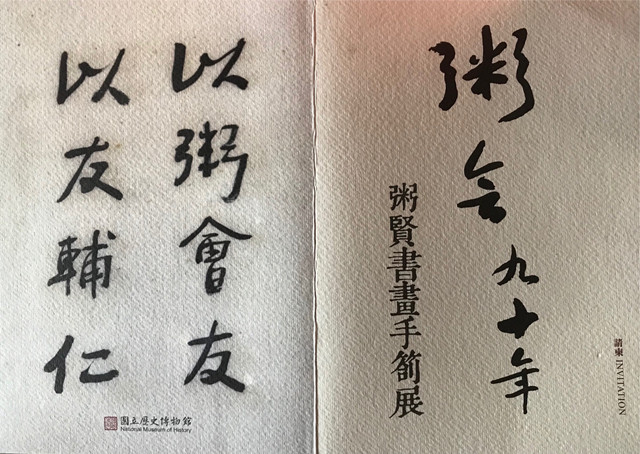 粥会九十年
粥賢書畫手箚展
請柬 INVITATION
以粥會友
以友輔仁
國立歷史博物館
National Museum of History